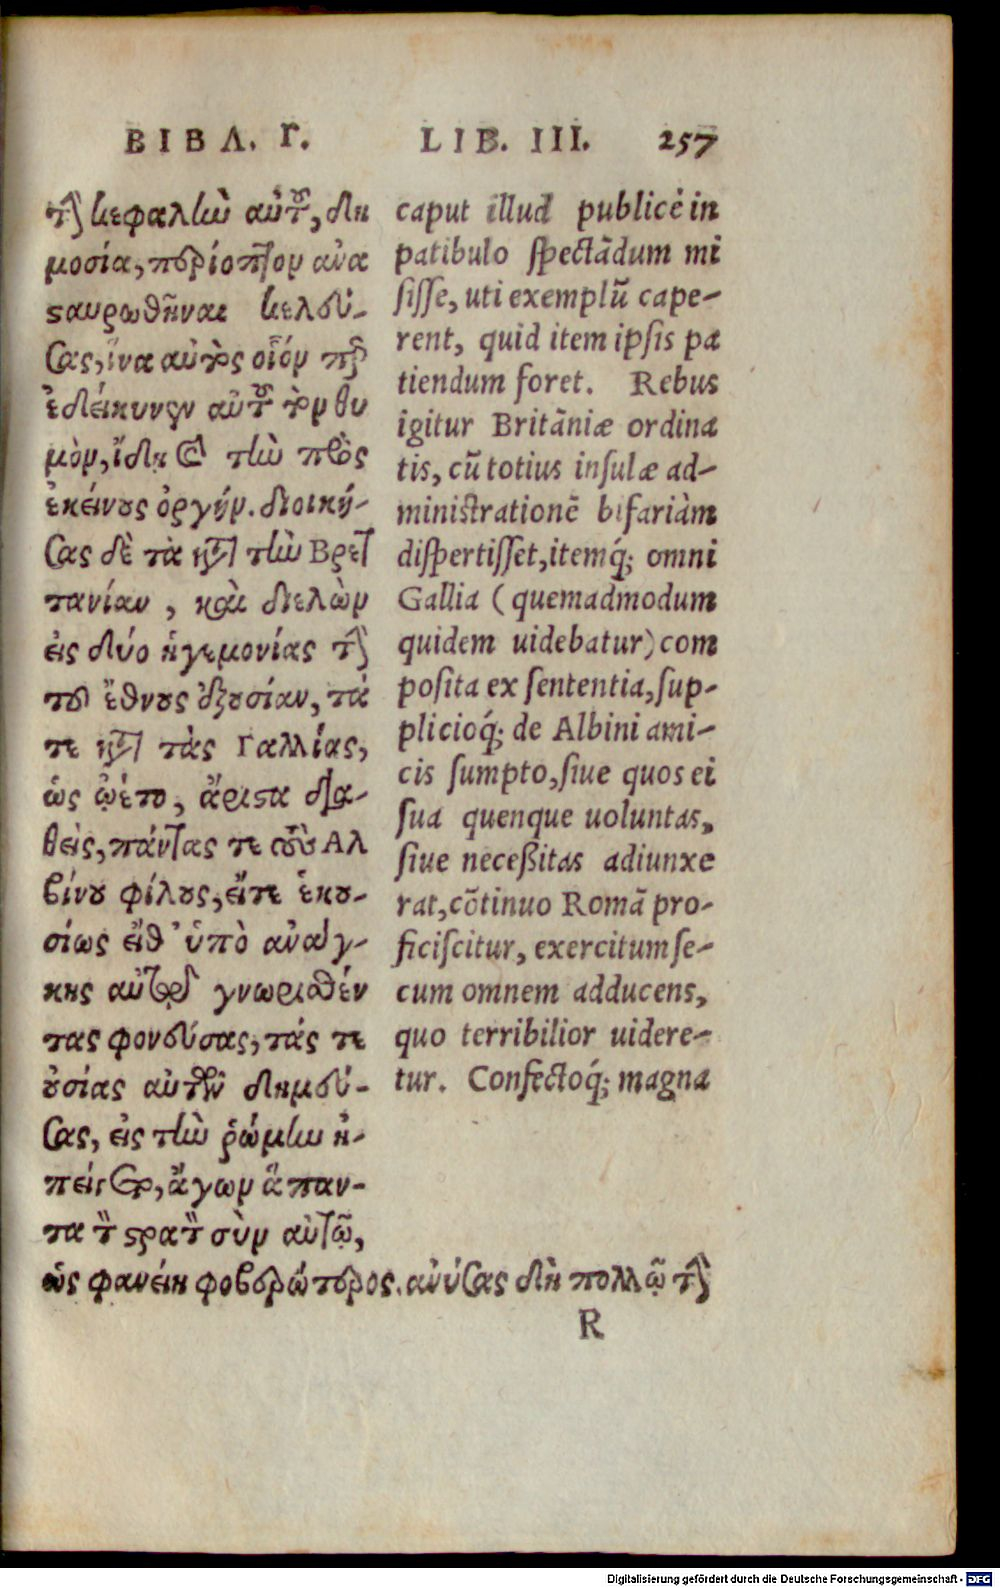 ΒΙΒΛ. Γ. LIB. III. 257
τὴν κεφαλὴν αὐτοῦ, δη
μοσίᾳ, περίοπτον ἀνα
σταυρωθῆναι κελεύ-
σας, ἵνα αὐτοῖς οἷόν περ
ἐδείκνυεν αὐτοῦ τὸν θυ
μὸν, ἴδῃ καὶ τὴν πρὸς
ἐκείνους ὀργήν. διοική-
σας δὲ τὰ κατὰ τὴν Βρετ
τανίαν, καὶ διελὼν
εἰς δύο ἡγεμονίας τὴν
τοῦ ἔθνους ἐξουσίαν, τά
τε κατὰ τὰς Γαλλίας,
ὡς ᾤετο, ἄριστα δια-
θεὶς, πάντας τε τοὺς Αλ
βίνου φίλους, εἴτε ἑκου-
σίως εἴθ' ὑπὸ ἀνάγ-
κης αὐτῷ γνωρισθέν
τας φονεύσας, τάς τε
οὐσίας αὐτῶν δημεύ-
σας, εἰς τὴν ῥώμην ἠ-
πείγετο, ἄγων ἅπαν-
τα τὸν στρατὸν σὺν αὑτῷ,
ὡς φανείη φοβερώτερος. ἀνύσας δὴ πολλῷ τῷ
caput illud publicè in
patibulo spectãdum mi
sisse, uti exemplũ cape-
rent, quid item ipsis pa
tiendum foret. Rebus
igitur Britãniæ ordina
tis, cũ totius insulæ ad-
ministrationẽ bifariàm
dispertisset, itemq́; omni
Gallia (quemadmodum
quidem uidebatur) com
posita ex sententia, sup-
plicioq́; de Albini ami-
cis sumpto, siue quos ei
sua quenque uoluntas,
siue neceßitas adiunxe
rat, cõtinuo Romã pro-
ficiscitur, exercitum se-
cum omnem adducens,
quo terribilior uidere-
tur. Confectoq́; magna
R
Digitalisierung gefördert durch die Deutsche Forschungsgemeinschaft - DFG